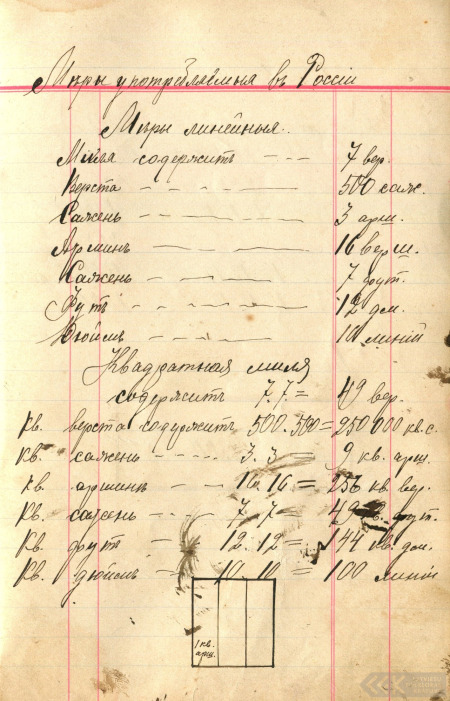 Мѣры употребляемыя въ Россіи
Мѣры линейныя.
Миля содержитъ - - - 7 вер.
Верста 500 саж.
Сажень 3 арш.
Аршинъ 16 верш.
Сажень 7 фут.
Футъ 12 дм.
Дюймъ 10 линій
Квадратная миля
содержитъ 7.7 = 49 вер.
Кв. верста содержитъ 500.500 = 250000 кв.с.
Кв. сажень - - - - - 3.3 = 9 кв. арш.
Кв. аршинъ - - 16.16 = 256 кв. вер.
Кв. сажень - - - 7.7 = 49 фут.
Кв. футъ - 12.12 = 144 кв. дм.
Кв. дюймъ - 10.10 = 100 линій
1 кв.
арш.